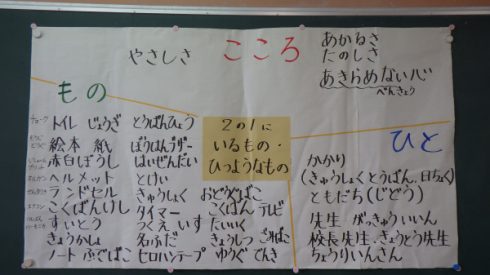 こころ
やさしさ
あかるさ
たのしさ
あきらめない心
べんきょう
もの
チョーク
トイレ じょうぎ とうばんひょう
絵本 紙
赤白ぼうし はいぜんだい
ヘルメット とけい
ランドセル きゅうしょく おどうぐばこ
こくばんけし タイマー こくばん テレビ
すいとう つくえ いす たいいく
きょうかしょ 名ふだ きょうしつ ごみばこ
ノート ふでばこ セロハンテープ ゆうぐ でんき
2の1に
いるもの・
ひつようなもの
ひと
かかり
(きゅうしょくとうばん、日ちょく)
ともだち(じどう)
先生 がっきゅういいん
校長先生・きょうとう先生
ちゅうりいんさん